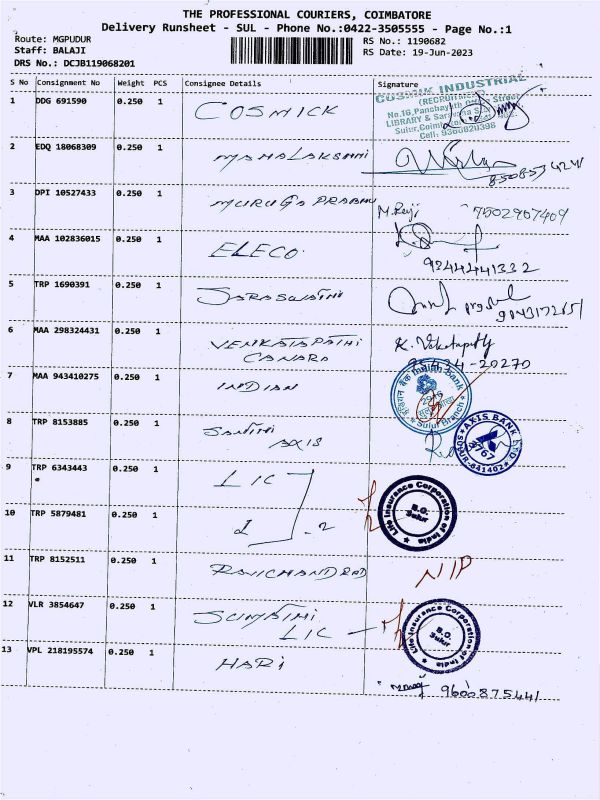 THE PROFESSIONAL COURIERS, COIMBATORE
Delivery Runsheet - SUL - Phone No.:0422-3505555 - Page No.:1
Route: MGPUDUR
RS No.: 1190682
Staff: BALAJI
RS Date: 19-Jun-2023
DRS No.: DCJB119068201
S No Consignment No Weight PCS Consignee Details Signature
1 DDG 691590 0.250 1 COSMICK
COSMIK INDUSTRIAL
(RECRUITMENT
No.16, Panchayath Street
LIBRARY &
Sulur, Coim
Cell: 9360820398
2 EDQ 18068309 0.250 1 MAHALAKSHMI
3 DPI 10527433 0.250 1 MURUGA PRABHU 7502907409
4 MAA 102836015 0.250 1 ELECO
9244441332
5 TRP 1690391 0.250 1 SARASWATHI
6 MAA 298324431 0.250 1 VENKATAPATHI
CANARA
7 MAA 943410275 0.250 1 INDIAN
Indian Bank
Sulur Branch
8 TRP 8153885 0.250 1 SANTHI
AXIS
AXIS BANK LTD
SULUR-641402
9 TRP 6343443 0.250 1 LIC
Life Insurance Corporation of India
B.O.
Sulur
10 TRP 5879481 0.250 1 2
11 TRP 8152511 0.250 1 RAVICHANDRAN N/P
12 VLR 3854647 0.250 1 SUMATHI
LIC
Life Insurance Corporation of India
B.O.
Sulur
13 VPL 218195574 0.250 1 HARI
9600875441